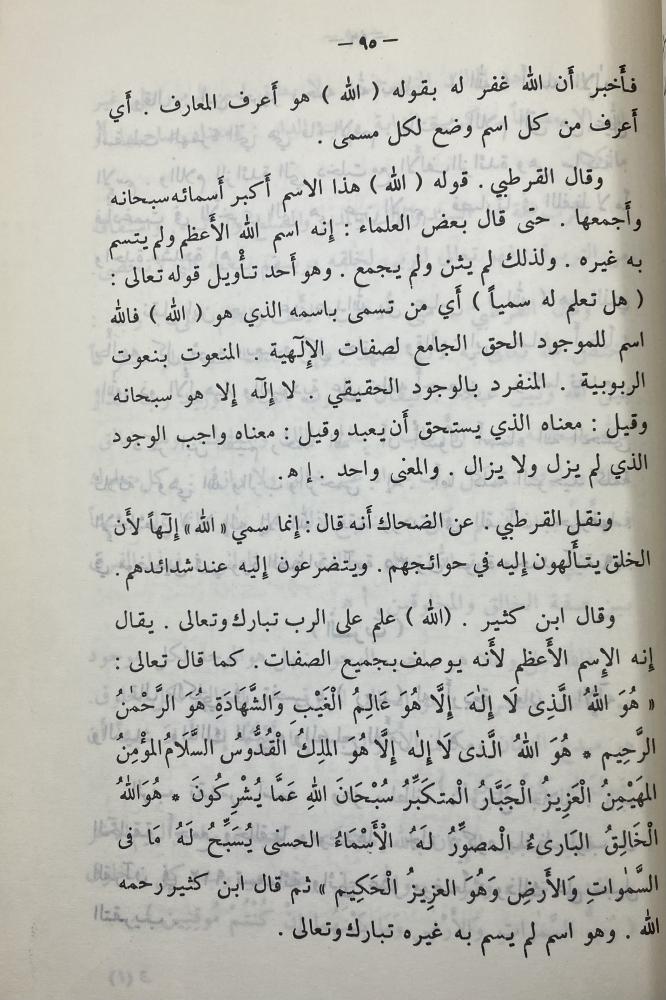 — ٩٥ —
فأَخبر أَن الله غفر له بقوله ( الله ) هو أَعرف المعارف . أَي
أَعرف من كل اسم وضع لكل مسمى .
وقال القرطبي . قوله ( الله ) هذا الاسم أَكبر أَسمائه سبحانه
وأَجمعها . حتى قال بعض العلماء : إِنه اسم الله الأَعظم ولم يتسم
به غيره . ولذلك لم يثن ولم يجمع . وهو أَحد تأْويل قوله تعالى :
( هل تعلم له سمياً ) أَي من تسمى باسمه الذي هو ( الله ) فالله
اسم للموجود الحق الجامع لصفات الإِلٓهية . المنعوت بنعوت
الربوبية . المنفرد بالوجود الحقيقي . لا إِلٓه إِلا هو سبحانه
وقيل : معناه الذي يستحق أَن يعبد وقيل : معناه واجب الوجود
الذي لم يزل ولا يزال . والمعنى واحد . إ هـ .
ونقل القرطبي . عن الضحاك أَنه قال : إِنما سمي « الله » إِلٓهاً لأَن
الخلق يتأَلهون إِليه في حوائجهم . ويتضرعون إِليه عند شدائدهم .
وقال ابن كثير . (الله ) علم على الرب تبارك وتعالى . يقال
إِنه الإِسم الأَعظم لأَنه يوصف بجميع الصفات . كما قال تعالى :
« هُوَ اللهُ الَّذِى لَا إِلٰهَ إِلَّا هُوَ عَالِمُ الْغَيْبِ وَالشَّهَادَةِ هُوَ الرَّحْمٰنُ
الرَّحِيم * هُوَ اللهُ الَّذى لَا إِلٰه إِلَّا هُوَ المَلِكُ الْقُدُّوسُ السَّلَامُ المؤْمِنُ
المهَيْمِنُ الْعَزِيزُ الْجَبَّارُ الْمتكَبِّرُ سُبْحَانَ اللهِ عَمَّا يُشْرِكُونَ * هُوَ اللهُ
الْخَالِقُ البَارىءُ الْمصوِّرُ لَهُ الْأَسْمَاءُ الحسنى يُسَبِّحُ لَهُ مَا فى
السَّمٰواتِ وَالأَرضِ وَهُوَ العزِيزُ الْحَكِيم » ثم قال ابن كثير رحمه
الله . وهو اسم لم يسم به غيره تبارك وتعالى .